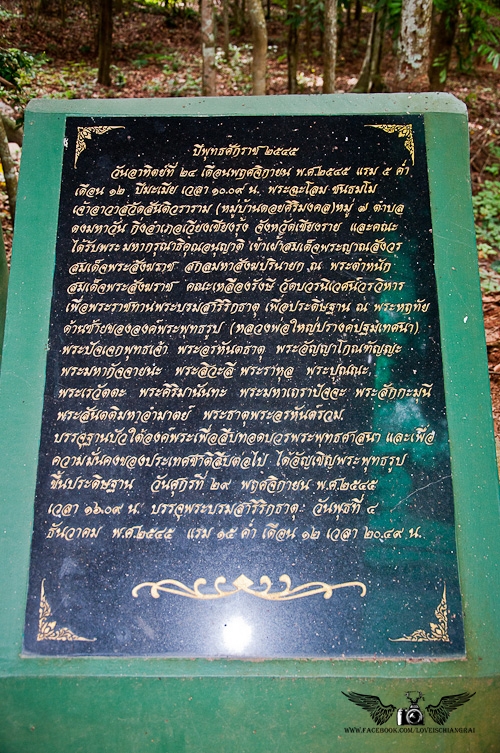 ปีพุทธศักราช ๒๕๔๕
วันอาทิตย์ที่ ๒๔ เดือนพฤศจิกายน พ.ศ.๒๕๔๕ แรม ๕ ค่ำ
เดือน ๑๒ ปีมะเมีย เวลา ๑๐.๐๙ น. พระฉะโลม ชนธมโม
เจ้าอาวาสวัดสันติวราราม (หมู่บ้านดอยศิริมงคล)หมู่ ๗ ตำบล
ดงมหาวัน กิ่งอำเภอเวียงเชียงรุ้ง จังหวัดเชียงราย และคณะ
ได้รับพระมหากรุณาธิคุณอนุญาติ เข้าเฝ้าสมเด็จพระญาณสังวร
สมเด็จพระสังฆราช สกลมหาสังฆปรินายก ณ พระตำหนัก
สมเด็จพระสังฆราช คณะเหลืองรังษี วัดบวรนิเวศน์วรวิหาร
เพื่อพระราชทานพระบรมสารีริกธาตุ เพื่อประดิษฐาน ณ พระหฤทัย
ด้านซ้ายขององค์พระพุทธรูป (หลวงพ่อใหญ่ปรางค์ปฐมเทศนา)
พระปัจเจกพุทธเจ้า พระอรหันตธาตุ พระอัญญาโกณฑัญญะ
พระมหากัจจายนะ พระสิวะลี พระราหุล พระปุณณะ
พระเรวัตตะ พระคิริมานันทะ พระมหาเถราปัจจะ พระสักกะมุนี
พระสันตติมหาอำมาตย์ พระธาตุพระอรหันต์รวม
บรรจุฐานบัวใต้องค์พระเพื่อสืบทอดบวรพระพุทธศาสนา และเพื่อ
ความมั่นคงของประเทศชาติสืบต่อไป ได้อัญเชิญพระพุทธรูป
ขึ้นประดิษฐาน วันศุกร์ที่ ๒๙ พฤศจิกายน พ.ศ.๒๕๔๕
เวลา ๑๒.๐๙ น. บรรจุพระบรมสารีริกธาตุ วันพุธที่ ๔
ธันวาคม พ.ศ.๒๕๔๕ แรม ๑๕ ค่ำ เดือน ๑๒ เวลา ๒๐.๔๙ น.
WWW.FACEBOOK.COM/LOVEISCHIANGRAI